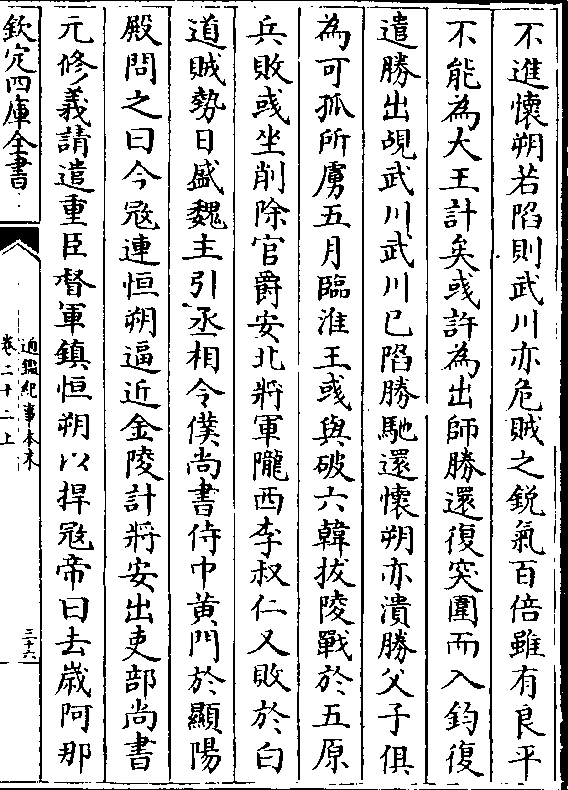 不進懷朔若陷則武川亦危賊之鋭氣百倍雖有良平
不能為大王計矣彧許為出師勝還復突圍而入鈞復
遣勝出覘武川武川已陷勝馳還懷朔亦潰勝父子俱
為可孤所虜五月臨淮王彧與破六韓拔陵戰於五原
兵敗彧坐削除官爵安北將軍隴西李叔仁又敗於白
道賊勢日盛魏主引丞相令僕尚書侍中黄門於顯陽
殿問之曰今冦連恒朔逼近金陵計將安出吏部尚書
元修義請遣重臣督軍鎮恒朔以捍冦帝曰去嵗阿那
欽定四庫全書
通鑑紀事本末
卷二十二上
三十六